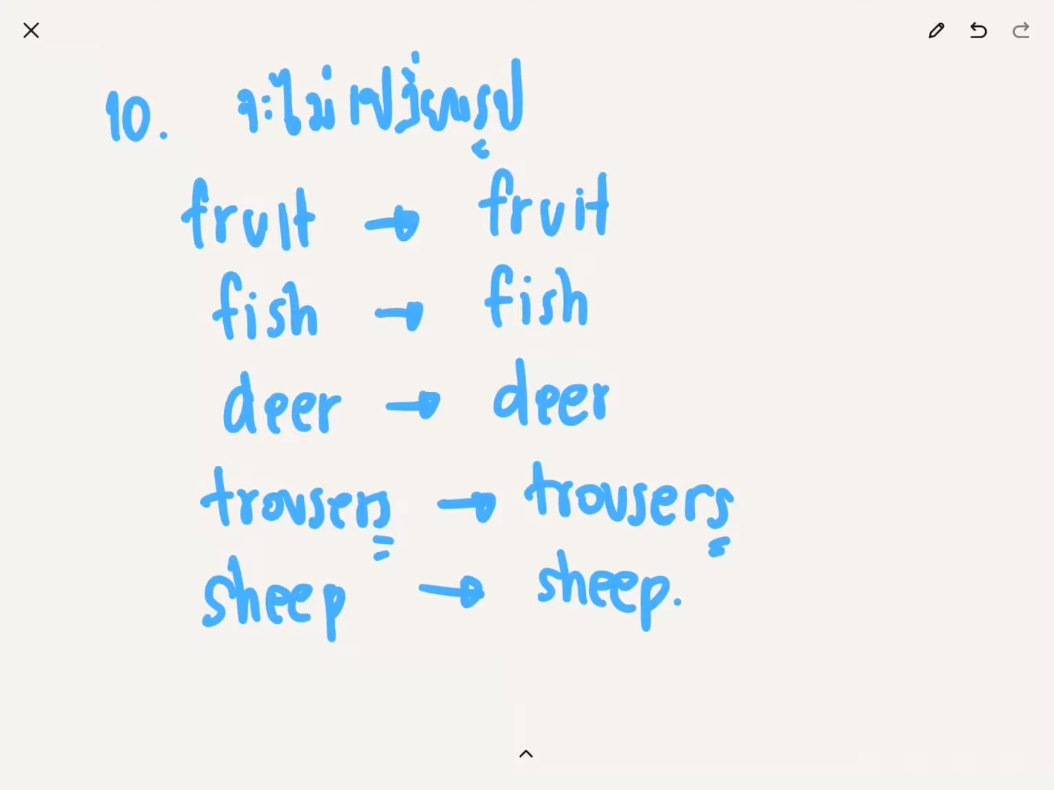 10. จะไม่เปลี่ยนรูป
fruit → fruit
fish → fish
deer → deer
trousers → trousers
sheep → sheep.